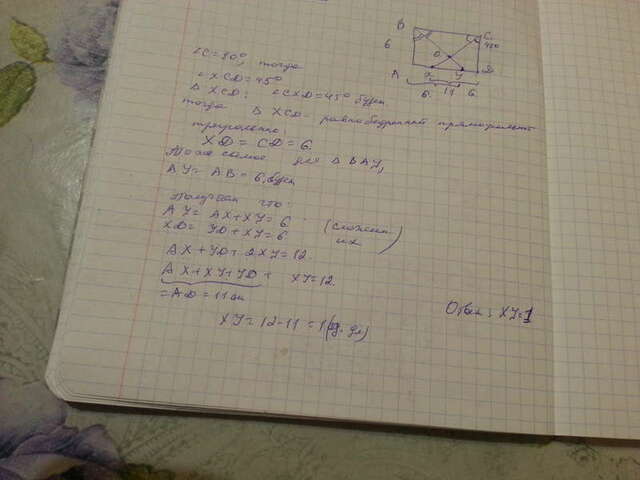 B
C
45°
6
O
A
X
Y
D
6
11
6
∠C=90°, тогда
∠XCD=45°
△XCD: ∠CXD=45° будет
тогда △XCD равнобедренный прямоугольн
треугольник:
XD = CD = 6.
То же самое для △BAY,
AY = AB = 6.
Получаем что:
AY = AX+XY = 6
XD = YD+XY = 6
(сложим их)
AX+YD+2XY=12.
AX+XY+YD + XY=12.
=AD=11
XY=12-11=1
Ответ: XY=1